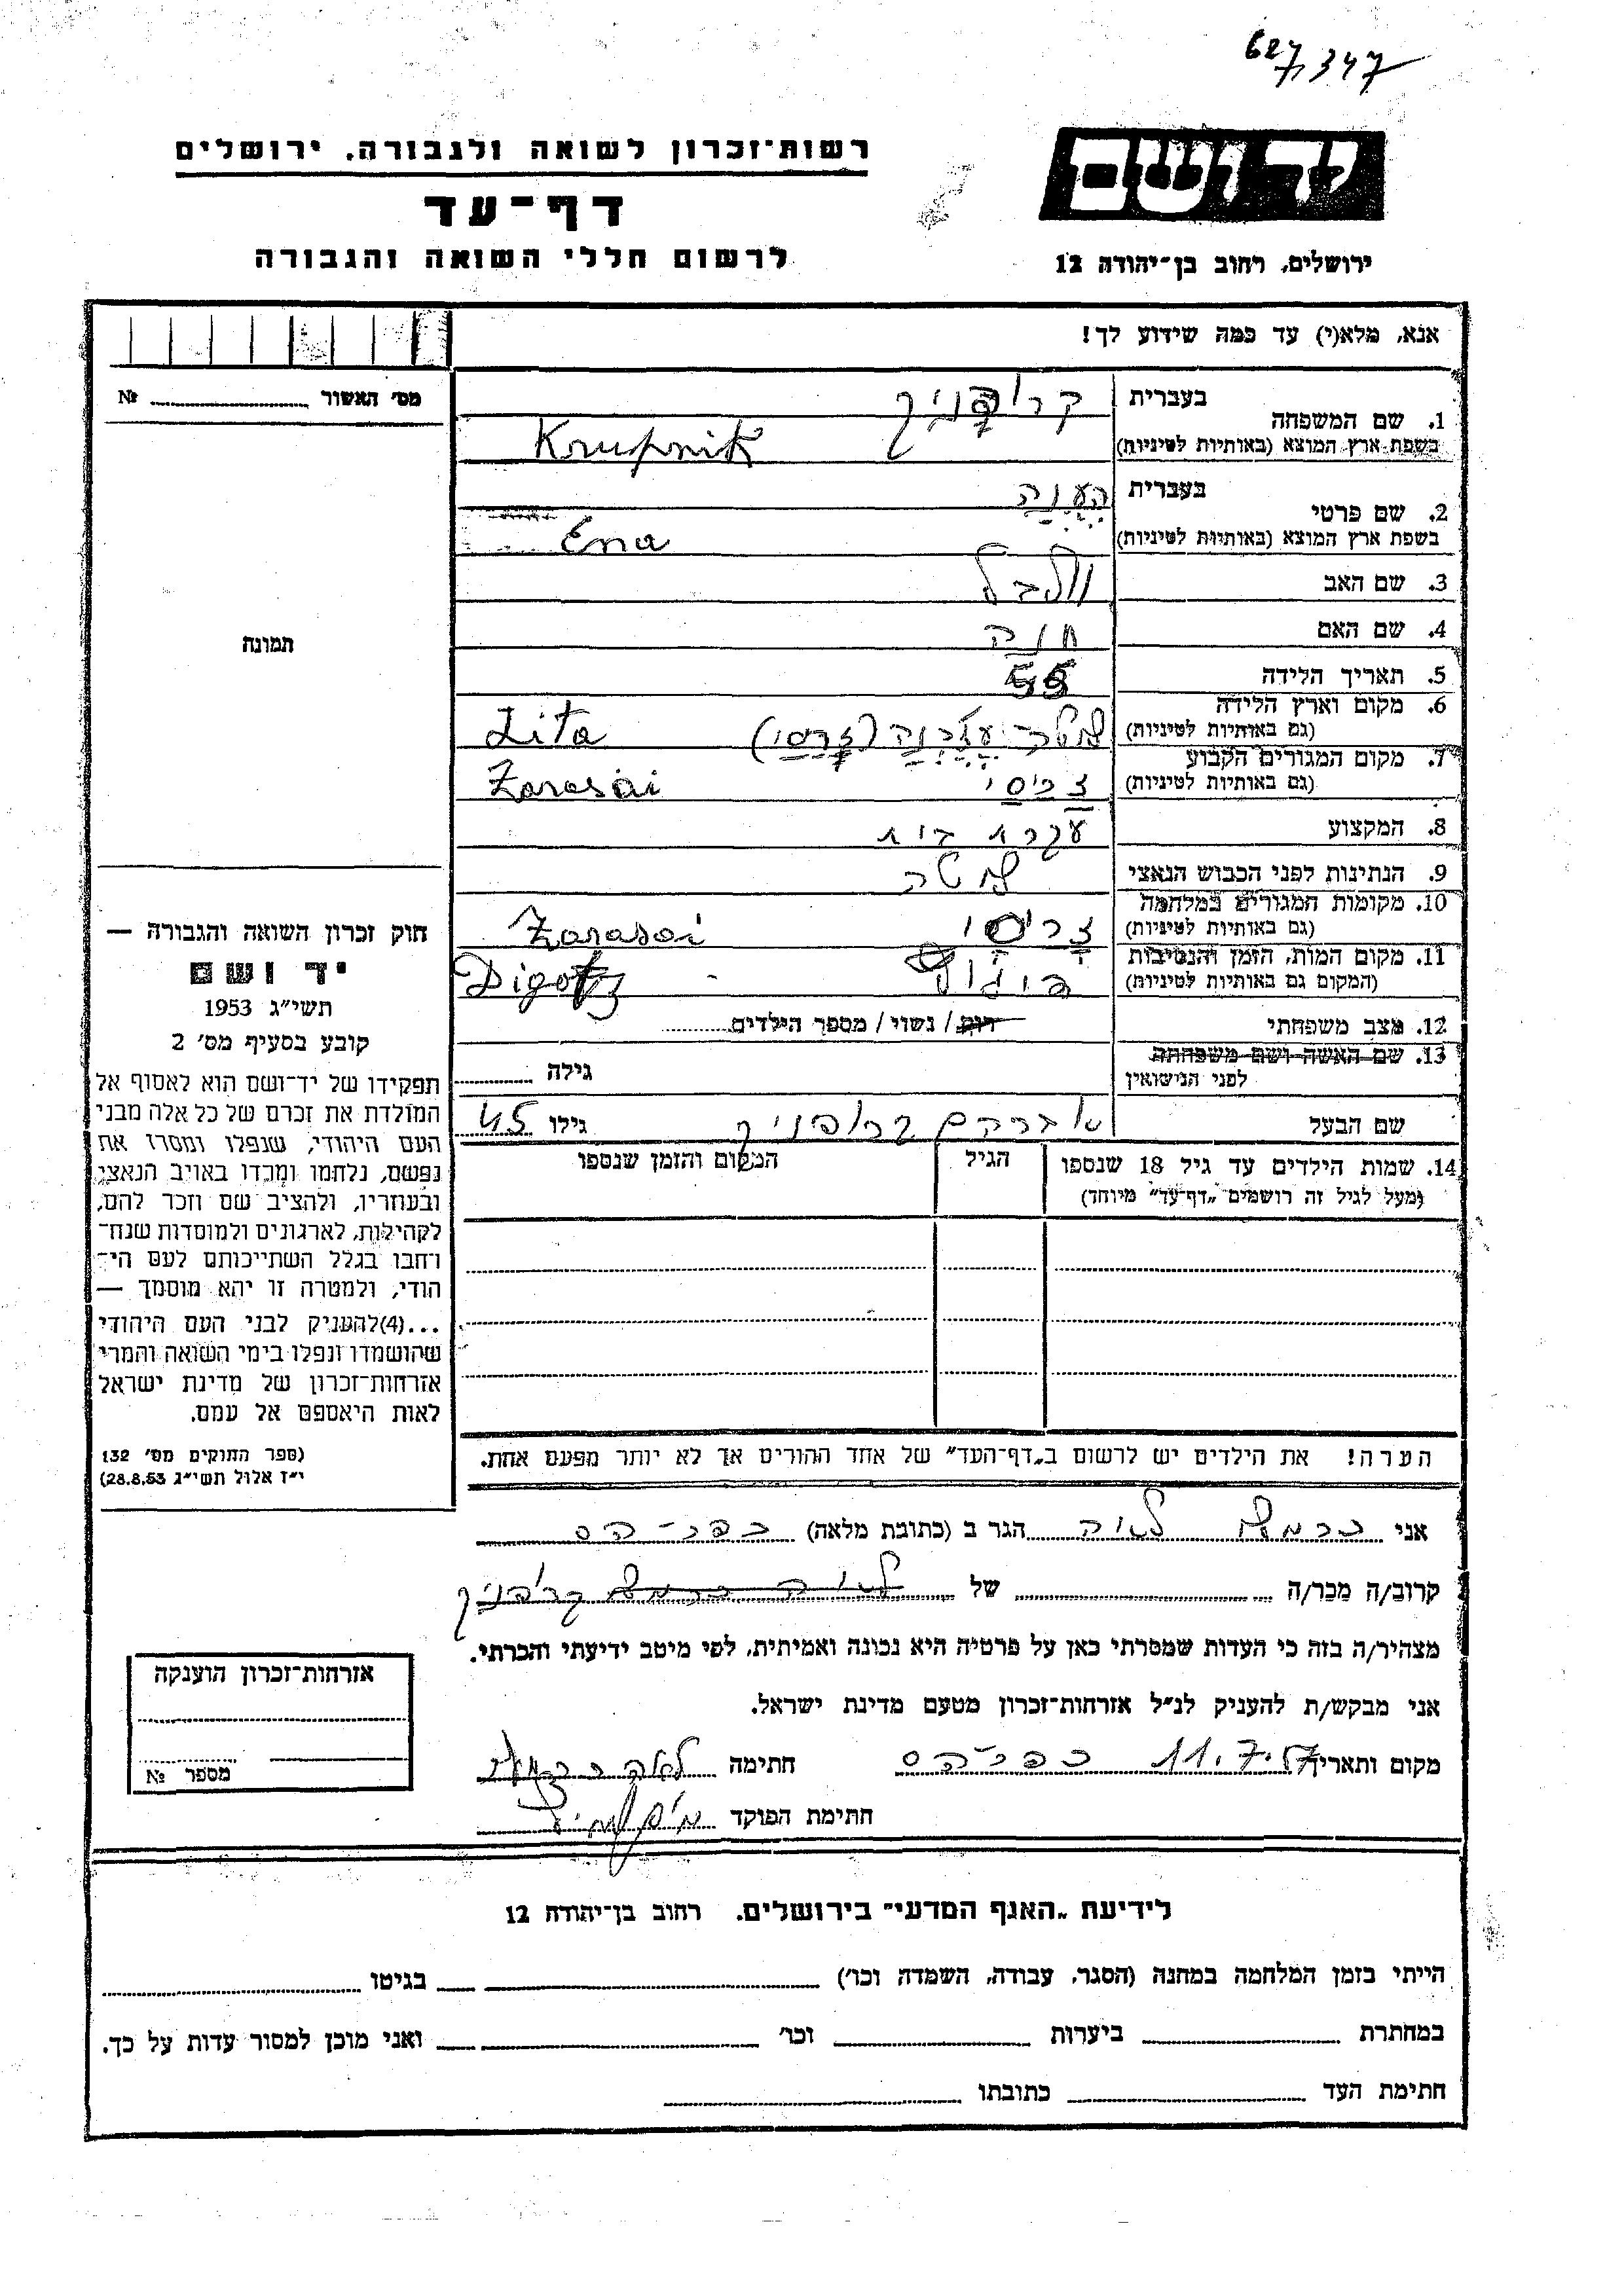 627,347
רשות־זכרון לשואה ולגבורה, ירושלים
ידושם
דף־עד
לרשום חללי השואה והגבורה
ירושלים, רחוב בן־יהודה 12
אנא, מלא(י) עד כמה שידוע לך!
מס׳ האשור № 
1. שם המשפחה בעברית קרופניק
בשפת ארץ המוצא (באותיות לטיניות) Krupnik
2. שם פרטי בעברית הענה
בשפת ארץ המוצא (באותיות לטיניות) Ena
3. שם האב וולבל
4. שם האם חנה
5. תאריך הלידה
6. מקום וארץ הלידה
(גם באותיות לטיניות) ליטה Lita
7. מקום המגורים הקבוע
(גם באותיות לטיניות) זרסי Zarasai
8. המקצוע עקרת בית
9. הנתינות לפני הכבוש הנאצי ליטה
10. מקומות המגורים במלחמה
(גם באותיות לטיניות) זרסי Zarasai
11. מקום המות, הזמן והנסיבות
(המקום גם באותיות לטיניות)
12. מצב משפחתי רווק / נשוי / מספר הילדים
13. שם האשה ושם משפחתה
לפני הנישואין גילה
שם הבעל אברהם קרופניק גילו 45
14. שמות הילדים עד גיל 18 שנספו הגיל המקום והזמן שנספו
(מעל לגיל זה רושמים „דף־עד״ מיוחד)
הערה! את הילדים יש לרשום ב„דף־העד״ של אחד ההורים אך לא יותר מפעם אחת.
תמונה
חוק זכרון השואה והגבורה —
יד ושם
תשי״ג 1953
קובע בסעיף מס׳ 2
תפקידו של יד־ושם הוא לאסוף אל
המולדת את זכרם של כל אלה מבני
העם היהודי, שנפלו ומסרו את
נפשם, נלחמו ומרדו באויב הנאצי
ובעוזריו, ולהציב שם וזכר להם,
לקהילות, לארגונים ולמוסדות שנח־
רחבו בגלל השתייכותם לעם הי־
הודי, ולמטרה זו יהא מוסמך —
...(4)להעניק לבני העם היהודי
שהושמדו ונפלו בימי השואה והמרי
אזרחות־זכרון של מדינת ישראל
לאות היאספם אל עמם.
(ספר החוקים מס׳ 132
י״ז אלול תשי״ג 28.8.53)
אני כרמל לאה הגר ב (כתובת מלאה)
קרוב/ה מכר/ה של לאה כרמל קרופניק
מצהיר/ה בזה כי העדות שמסרתי כאן על פרטיה היא נכונה ואמיתית, לפי מיטב ידיעתי והכרתי.
אני מבקש/ת להעניק לנ״ל אזרחות־זכרון מטעם מדינת ישראל.
מקום ותאריך 11.7.57 חתימה
חתימת הפוקד
אזרחות־זכרון הוענקה
מספר №
לידיעת „האגף המדעי״ בירושלים, רחוב בן־יהודה 12
הייתי בזמן המלחמה במחנה (הסגר, עבודה, השמדה וכו׳) בגיטו
במחתרת ביערות וכו׳ ואני מוכן למסור עדות על כך.
חתימת העד כתובתו